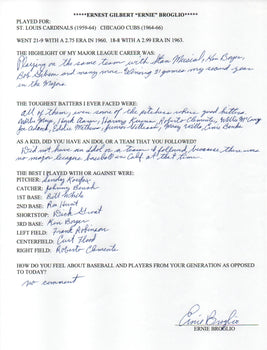 *****ERNEST GILBERT "ERNIE" BROGLIO*****
PLAYED FOR:
ST. LOUIS CARDINALS (1959-64) CHICAGO CUBS (1964-66)
WENT 21-9 WITH A 2.75 ERA IN 1960. 18-8 WITH A 2.99 ERA IN 1963.
THE HIGHLIGHT OF MY MAJOR LEAGUE CAREER WAS:
Playing on the same team with Stan Musial, Ken Boyer,
Bob Gibson and many more. Winning 21 games my second year
in the Majors
THE TOUGHEST BATTERS I EVER FACED WERE:
All of them, even some of the pitchers were good hitters.
Willie Mays, Hank Aaron, Harvey Kuenn, Roberto Clemente, Willie McCovey
Eddie Mathews, Maury Wills, Ernie Banks
AS A KID, DID YOU HAVE AN IDOL OR A TEAM THAT YOU FOLLOWED?
Did not have an idol or a team I followed because there was
no major league baseball in Calif at that time.
THE BEST I PLAYED WITH OR AGAINST WERE:
PITCHER: Sandy Koufax
CATCHER: Johnny Bench
1ST BASE: Bill White
2ND BASE: Ron Hunt
SHORTSTOP: Dick Groat
3RD BASE: Ken Boyer
LEFT FIELD: Frank Robinson
CENTERFIELD: Curt Flood
RIGHT FIELD: Roberto Clemente
HOW DO YOU FEEL ABOUT BASEBALL AND PLAYERS FROM YOUR GENERATION AS OPPOSED
TO TODAY?
no comment
Ernie Broglio
ERNIE BROGLIO